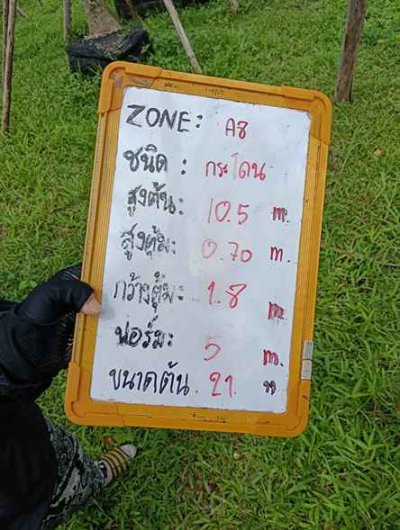 ZONE: A8
ชนิด : กระโดน
สูงต้น: 10.5 m.
สูงตุ้ม: 0.70 m.
กว้างตุ้ม: 1.8 m
ฟอร์ม: 5 m.
ขนาดต้น 21 "